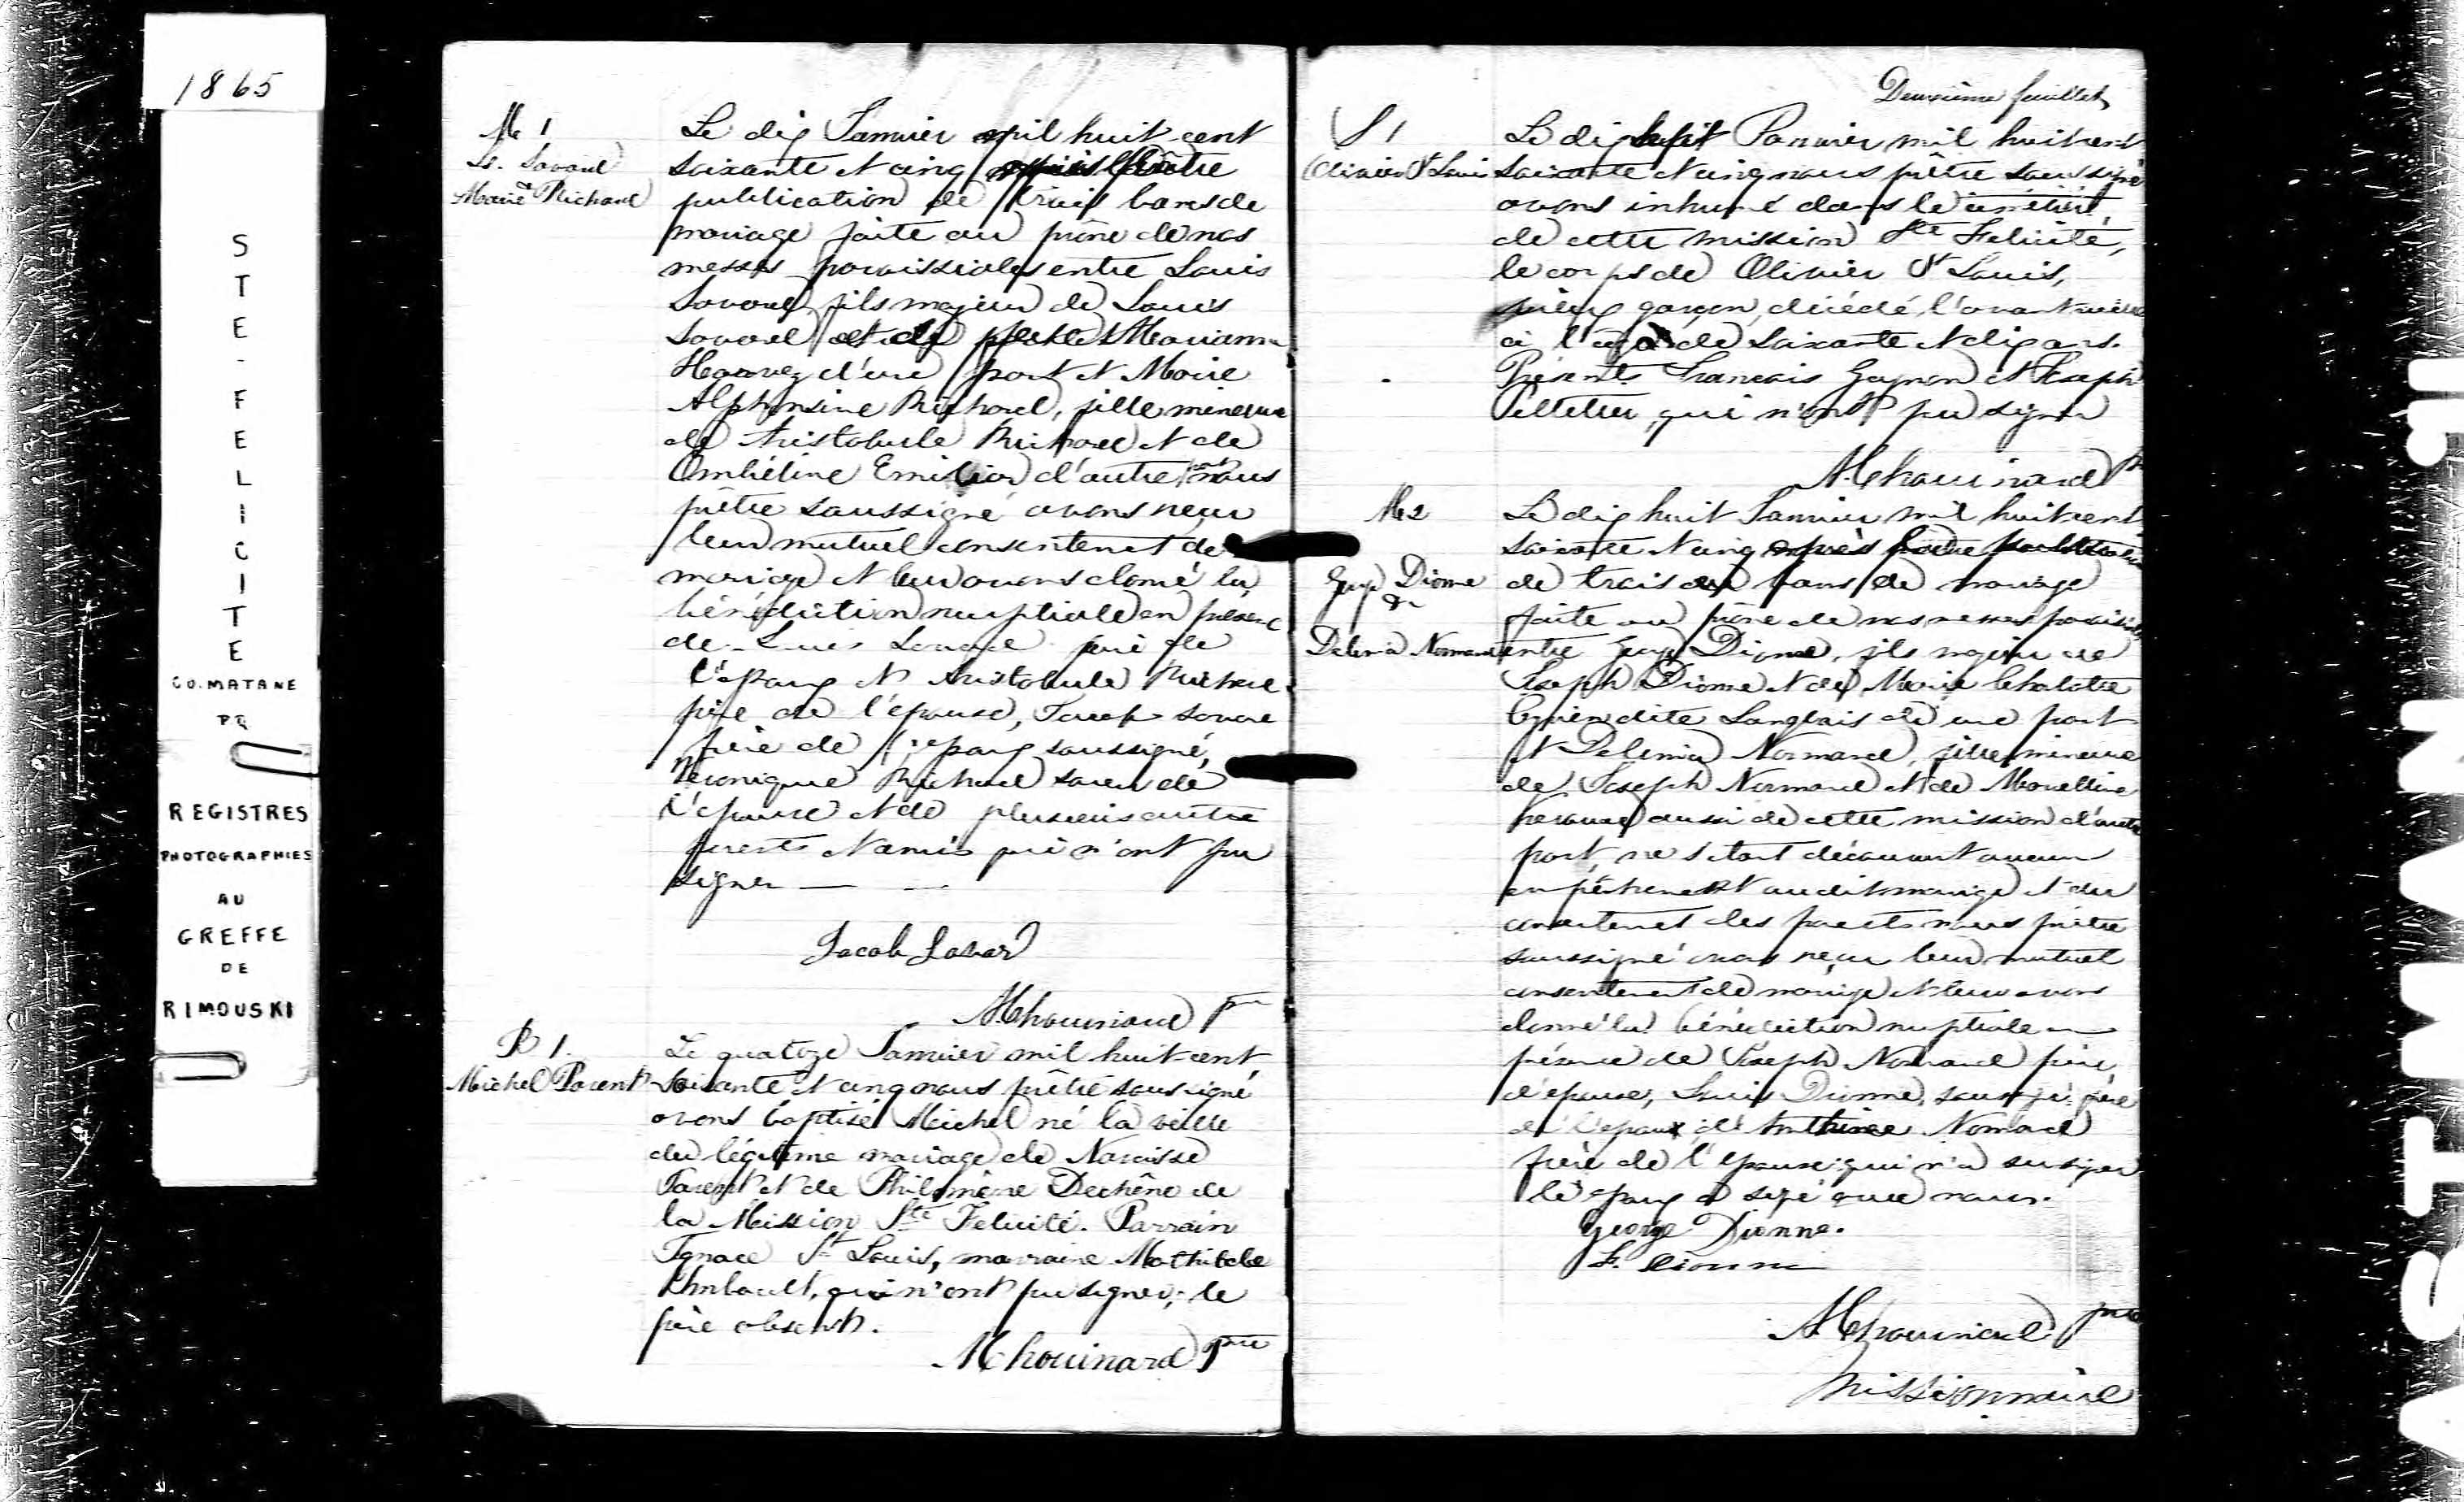 1865
STE-FELICITE
CO. MATANE
PQ
REGISTRES
PHOTOGRAPHIES
AU
GREFFE
DE
RIMOUSKI
M 1
Ls. Savard
Marie Richard
Le dix Janvier mil huit cent
soixante et cinq après
publication de trois bans de
mariage faite au prône de nos
messes paroissiales entre Louis
Savard, fils majeur de Louis
Savard et de Mariann
d'une part et Marie
Alphonsine Richard, fille mineure
de Aristobule Richard et de
Ombéline d'autre part nous
prêtre soussigné avons reçu
leur mutuel consentement de
mariage et leur avons donné la
bénédiction nuptiale en présence
de Louis Savard père de
l'époux et Aristobule Richard
père de l'épouse, Jacob Savard
frère de l'époux soussigné,
Véronique Richard soeur de
l'épouse et de plusieurs autre
parents et amis qui n'ont pu
signer
Jacob Savard
MChouinard ptre
B 1.
Michel Parent
Le quatoze Janvier mil huit cent
soixante et cinq nous prêtre soussigné
avons baptisé Michel né la veille
du légitime mariage de Narcisse
Parent et de Philomène Dechêne de
la Mission Ste Félicité. Parrain
Ignace St Louis, marraine Mathilde
Imbault, qui n'ont pu signer; le
père absent.
MChouinard ptre
Deuxième feuillet
S 1
Olivier St Louis
Le dix huit Janvier mil huit cent
soixante et cinq nous prêtre soussigné
avons inhumé dans le cimétière
de cette mission Ste Felicité,
le corps de Olivier St Louis,
vieux garçon, décédé l'avant veille
à l'age de soixante et dix ans.
Présents Francois Gagnon et Joseph
Pelletier, qui n'ont pu signer
MChouinard ptre
M 2
George Dionne
&
Delima Normand
Le dix huit Janvier mil huit cent
soixante et cinq après publication
de trois bans de mariage
faite au prône de nos messes paroissiales
entre George Dionne, fils majeur de
Joseph Dionne et de Marie Charlotte
dite Langlais de une part
et Delima Normand, fille mineure
de Joseph Normand et de
aussi de cette mission d'autre
part, ne s'étant découvert aucun
empêchement au dit mariage et du
consentement des parents nous prêtre
soussigné avons reçu leur mutuel
consentement de mariage et leur avons
donné la bénédiction nuptiale en
présence de Joseph Normand père
d'épouse, Louis Dionne, soussigné père
de l'époux de Normand
frère de l'épouse qui n'a su signer
le époux a signé avec nous.
George Dionne.
F. Dionne
MChouinard ptre
Missionnaire